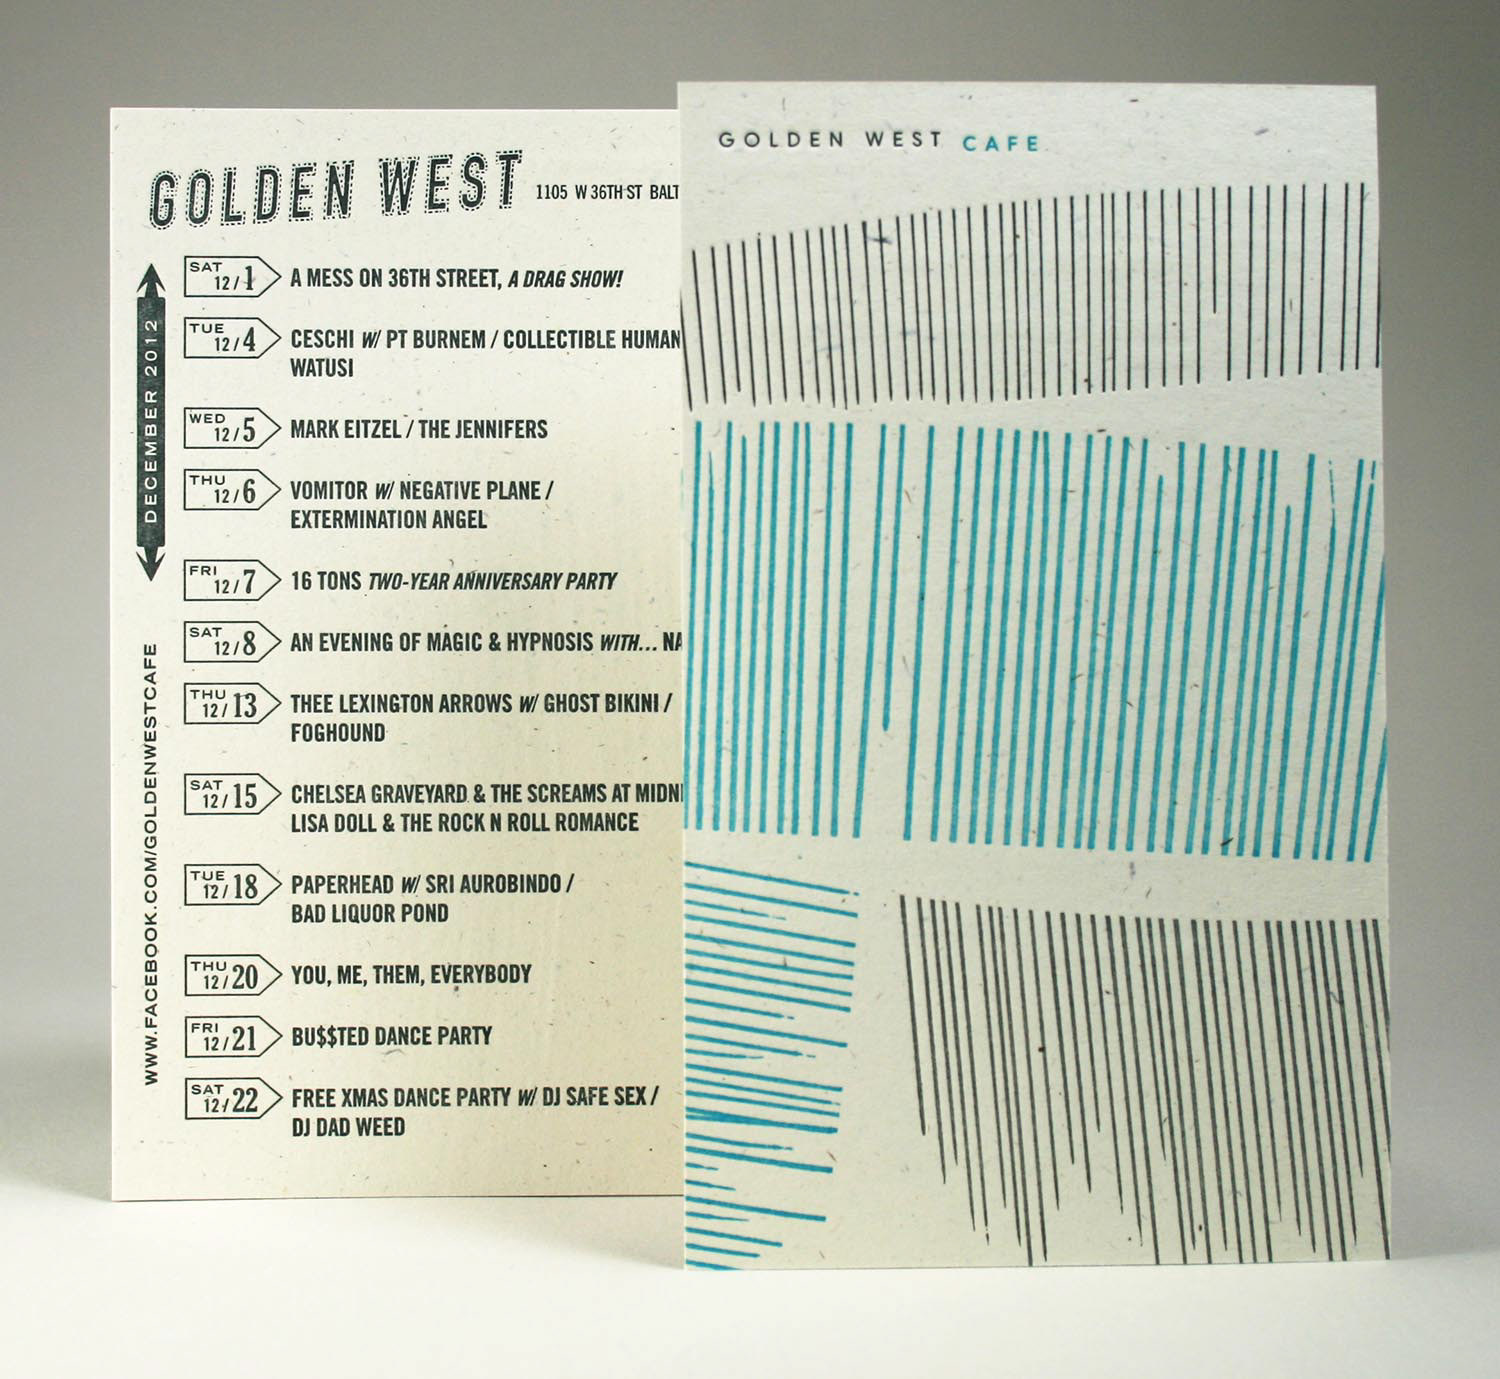 GOLDEN WEST 1105 W 36TH ST
SAT 12/1 A MESS ON 36TH STREET, A DRAG SHOW!
TUE 12/4 CESCHI W/ PT BURNEM / COLLECTIBLE HUMAN
WATUSI
WED 12/5 MARK EITZEL / THE JENNIFERS
THU 12/6 VOMITOR W/ NEGATIVE PLANE /
EXTERMINATION ANGEL
FRI 12/7 16 TONS TWO-YEAR ANNIVERSARY PARTY
SAT 12/8 AN EVENING OF MAGIC & HYPNOSIS WITH...
THU 12/13 THEE LEXINGTON ARROWS W/ GHOST BIKINI /
FOGHOUND
SAT 12/15 CHELSEA GRAVEYARD & THE SCREAMS AT
LISA DOLL & THE ROCK N ROLL ROMANCE
TUE 12/18 PAPERHEAD W/ SRI AUROBINDO /
BAD LIQUOR POND
THU 12/20 YOU, ME, THEM, EVERYBODY
FRI 12/21 BU$$TED DANCE PARTY
SAT 12/22 FREE XMAS DANCE PARTY W/ DJ SAFE SEX /
DJ DAD WEED
DECEMBER 2012
WWW.FACEBOOK.COM/GOLDENWESTCAFE
GOLDEN WEST CAFE